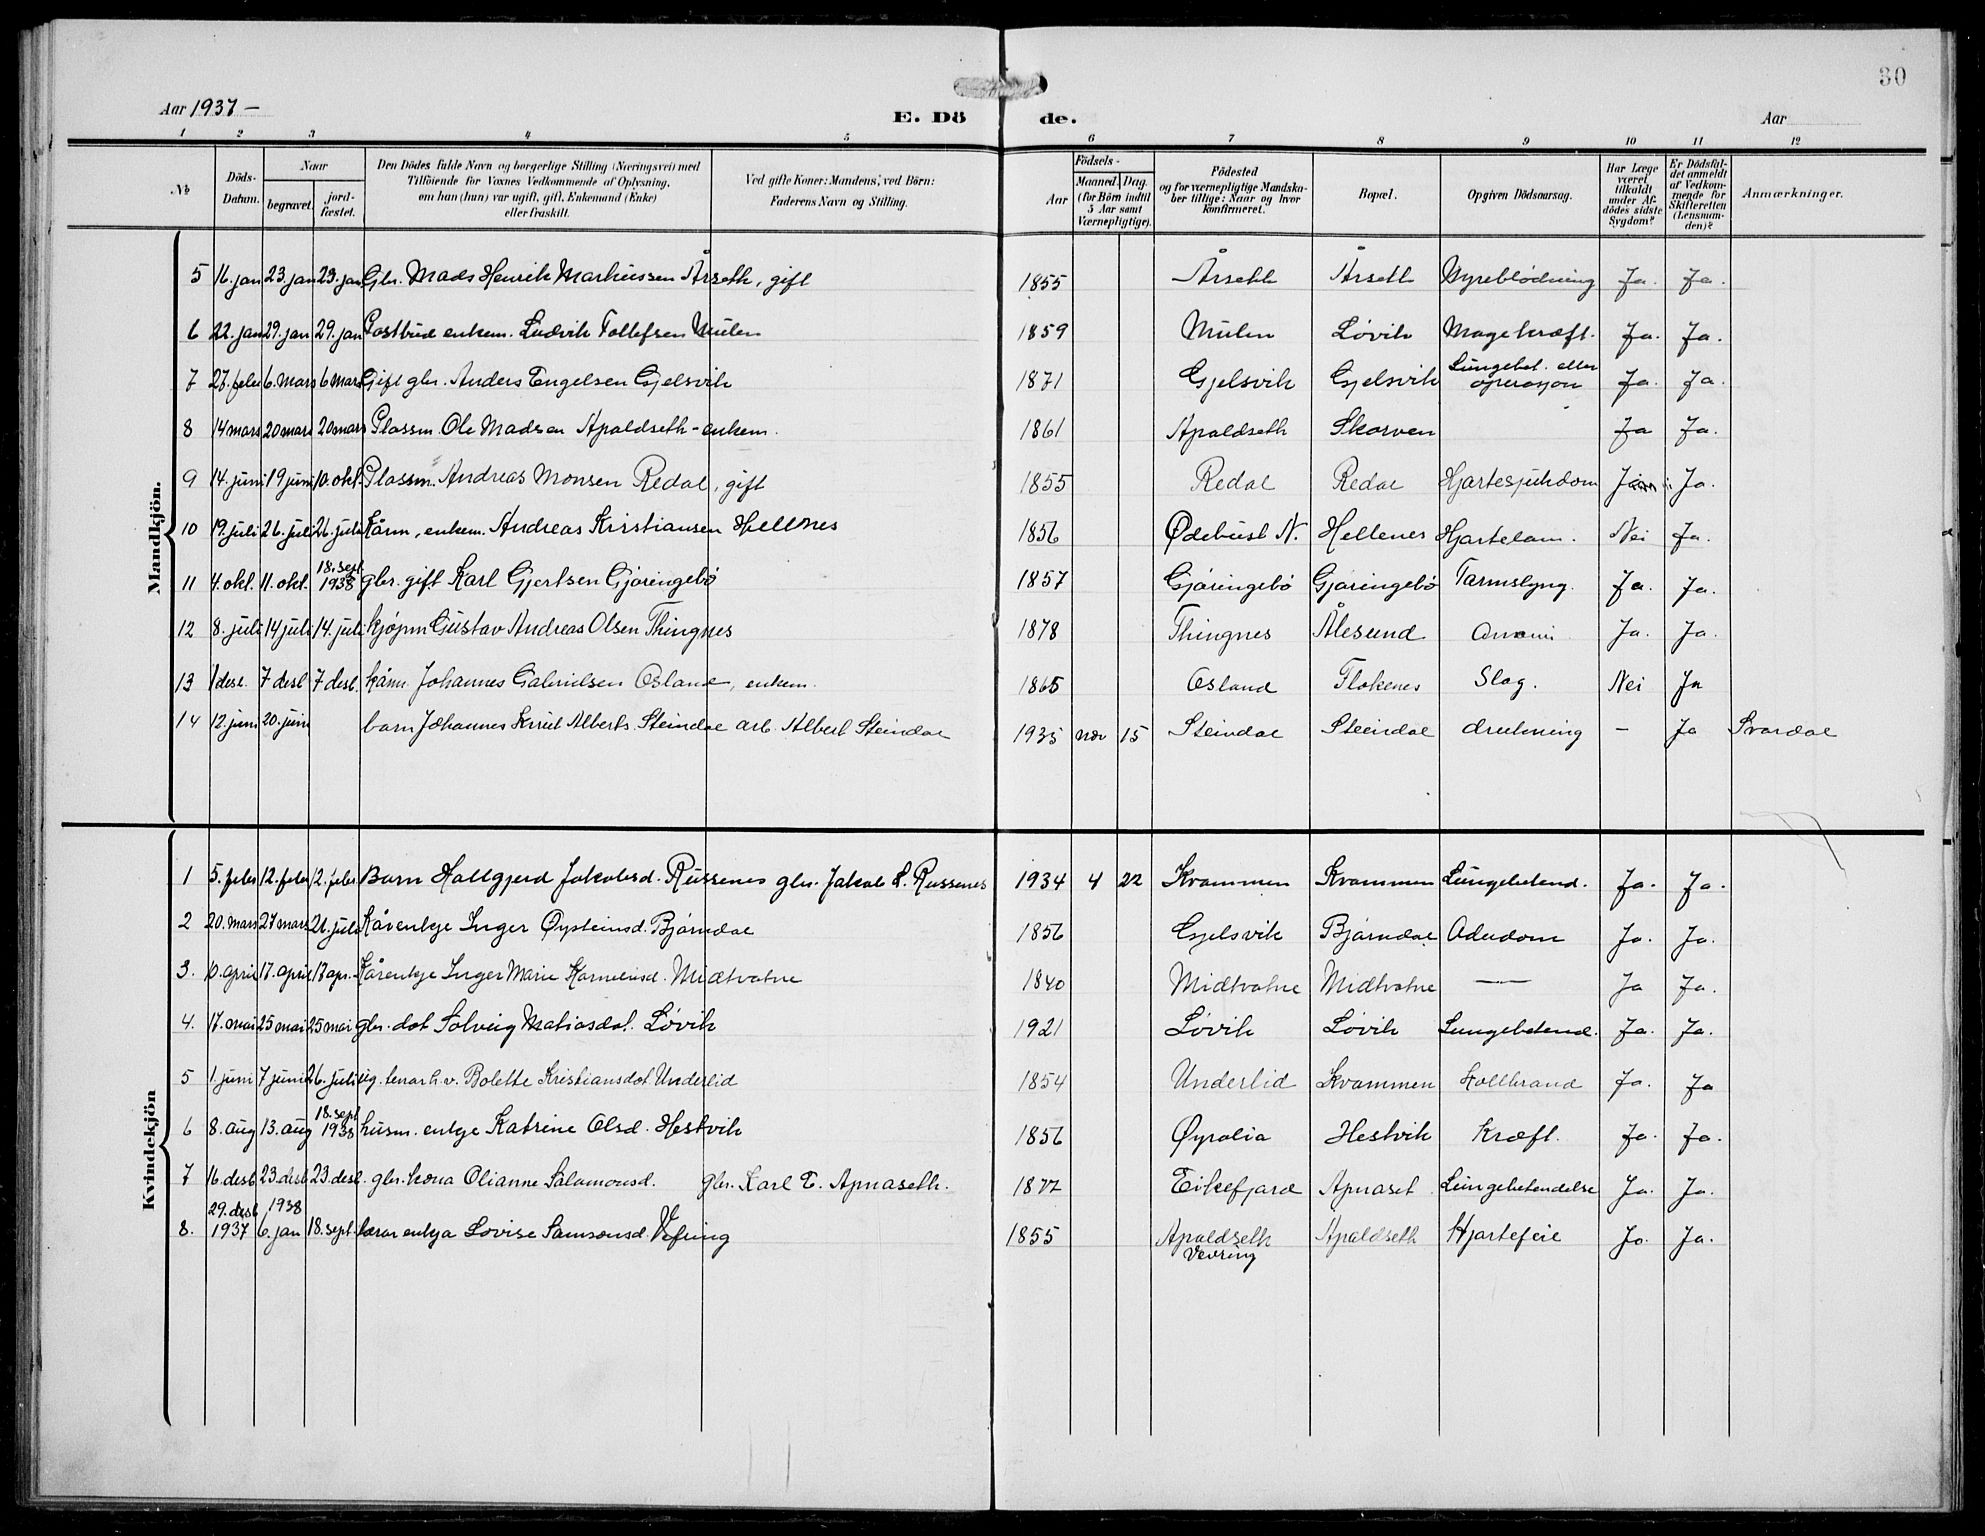 30
Aar 1937 —
E. Dö de.
Aar
1 2 3 4 5 6 7 8 9 10 11 12
No
Döds-Datum.
Naar
begravet.
jordfæstet.
Den Dödes fulde Navn og borgerlige Stilling (Næringsvei) med Tilföiende for Voxnes Vedkommende af Oplysning, om han (hun) var ugift, gift, Enkemand (Enke) eller fraskilt.
Ved gifte Koner: Mandens, ved Börn: Faderens Navn og Stilling.
Födsels-
Aar
Maaned. Dag.
(for Börn indtil 5 Aar samt Værnepligtige).
Födested og for værnepligtige Mandskaber tillige: Naar og hvor Konfirmeret.
Bopæl.
Opgiven Dödsaarsag.
Har Læge været tilkaldt under Afdödes sidste Sygdom?
Er Dödsfaldet anmeldt af Vedkommende for Skifteretten (Lensmanden)?
Anmærkninger.
Mandkjön.
5 16. jan 23. jan 23. jan Gbr. Mads Henrik Markussen Årseth, gift 1855 Årseth Årseth Nyreblødning Ja. Ja.
6 22. jan 29. jan 29. jan Postbud enkem. Ludvik Tollefsen Mulen 1859 Mulen Løvik Magekræft. Ja. Ja.
7 27. febr 6. mars 6 mars Gift gbr. Anders Engelsen Gjelsvik 1871 Gjelsvik Gjelsvik Lungebet. etter operasjon Ja. Ja.
8 14 mars 20 mars 20 mars Plassm. Ole Madsen Apaldseth - enkem. 1861 Apaldseth Skorven Ja Ja.
9 14. juni 19 juni 10. okt. Plassm. Andreas Monsen Redal, gift 1855 Redal Redal Hjartesjukdom Ja.
10 19. juli 26. juli 26. juli Kårm, enkem. Andreas Kristiansen Hellenes 1856 Ødebust N. Hellenes Hjartelam. Nei Ja.
11 4. okt. 11. okt. 18. sept 1938 gbr. gift Karl Gjertsen Gjøringebø 1857 Gjøringebø Gjøringebø Tarmslyng. Ja. Ja.
12 8. juli 14 juli 14. juli kjøpm Gustav Andreas Olsen Thingnes 1878 Thingnes Ålesund Anemi Ja. Ja.
13 1 des. 7 des 7 des. kårm. Johannes Gabrielsen Osland, enkem. 1865 Osland Flokenes Slag. Nei Ja
14 12. juni 20. juni barn Johannes Knut Alberts. Steindal arb. Albert Steindal 1935 nov 15 Steindal Steindal drukning — Ja Svardal
Kvindekjön
1 5. febr 12. febr 12. febr Barn Hallgjerd Jakobsd. Russenes gbr. Jakob L. Russenes 1934 4 22 Kvammen Kvammen Lungebetend. Ja. Ja.
2 20. mars 27 mars 26. juli Kårenkje Inger Øysteinsd. Bjørndal 1856 Gjelsvik Bjørndal Alderdom Ja. Ja.
3. 10. april 17. april 17 apr. Kårenkje Inger Marie Kornelusd. Midtvatne 1840 Midtvatne Midtvatne — Ja Ja.
4. 17. mai 25 mai 25 mai gbr. dot Solveig Matiasdot. Løvik 1921 Løvik Løvik Lungebetend. Ja. Ja.
5 1. juni 7 juni 26. juli ug. Bolette Kristiansdot Underlid 1854 Underlid Kvammen Koldbrand Ja. Ja
6 8. aug 13. aug 18. sept 1938 husm. enkje Katrine Olsd. Hestvik 1856 Øyralia Hestvik Kræft. Ja. Ja.
7 16. des 23. des 23. des. gbr. kona Olianne Salamonsd. gbr. Karl E. Apnaseth. 1877 Eikefjord Apnaset Lungebetendelse Ja. Ja.
8. 29. des 1937 1938 6. jan 18. sept. lærar enkja Lovise Samsonsd. Vefring 1855 Apaldseth Vevring Apaldseth Hjartefeil Ja. Ja.